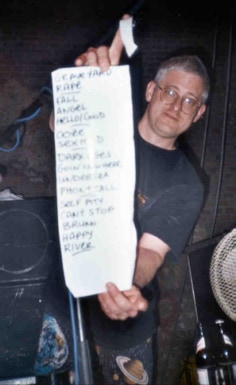 GRAVEYARD
RAPE
FALL
ANGEL
HELLO/GOOD
CORE
SEX
DARK AGES
GOIN NOWHERE
UNDERSEA
PHONE CALL
SELF PITY
CAN'T STOP
BRUNN
HAPPY
RIVER